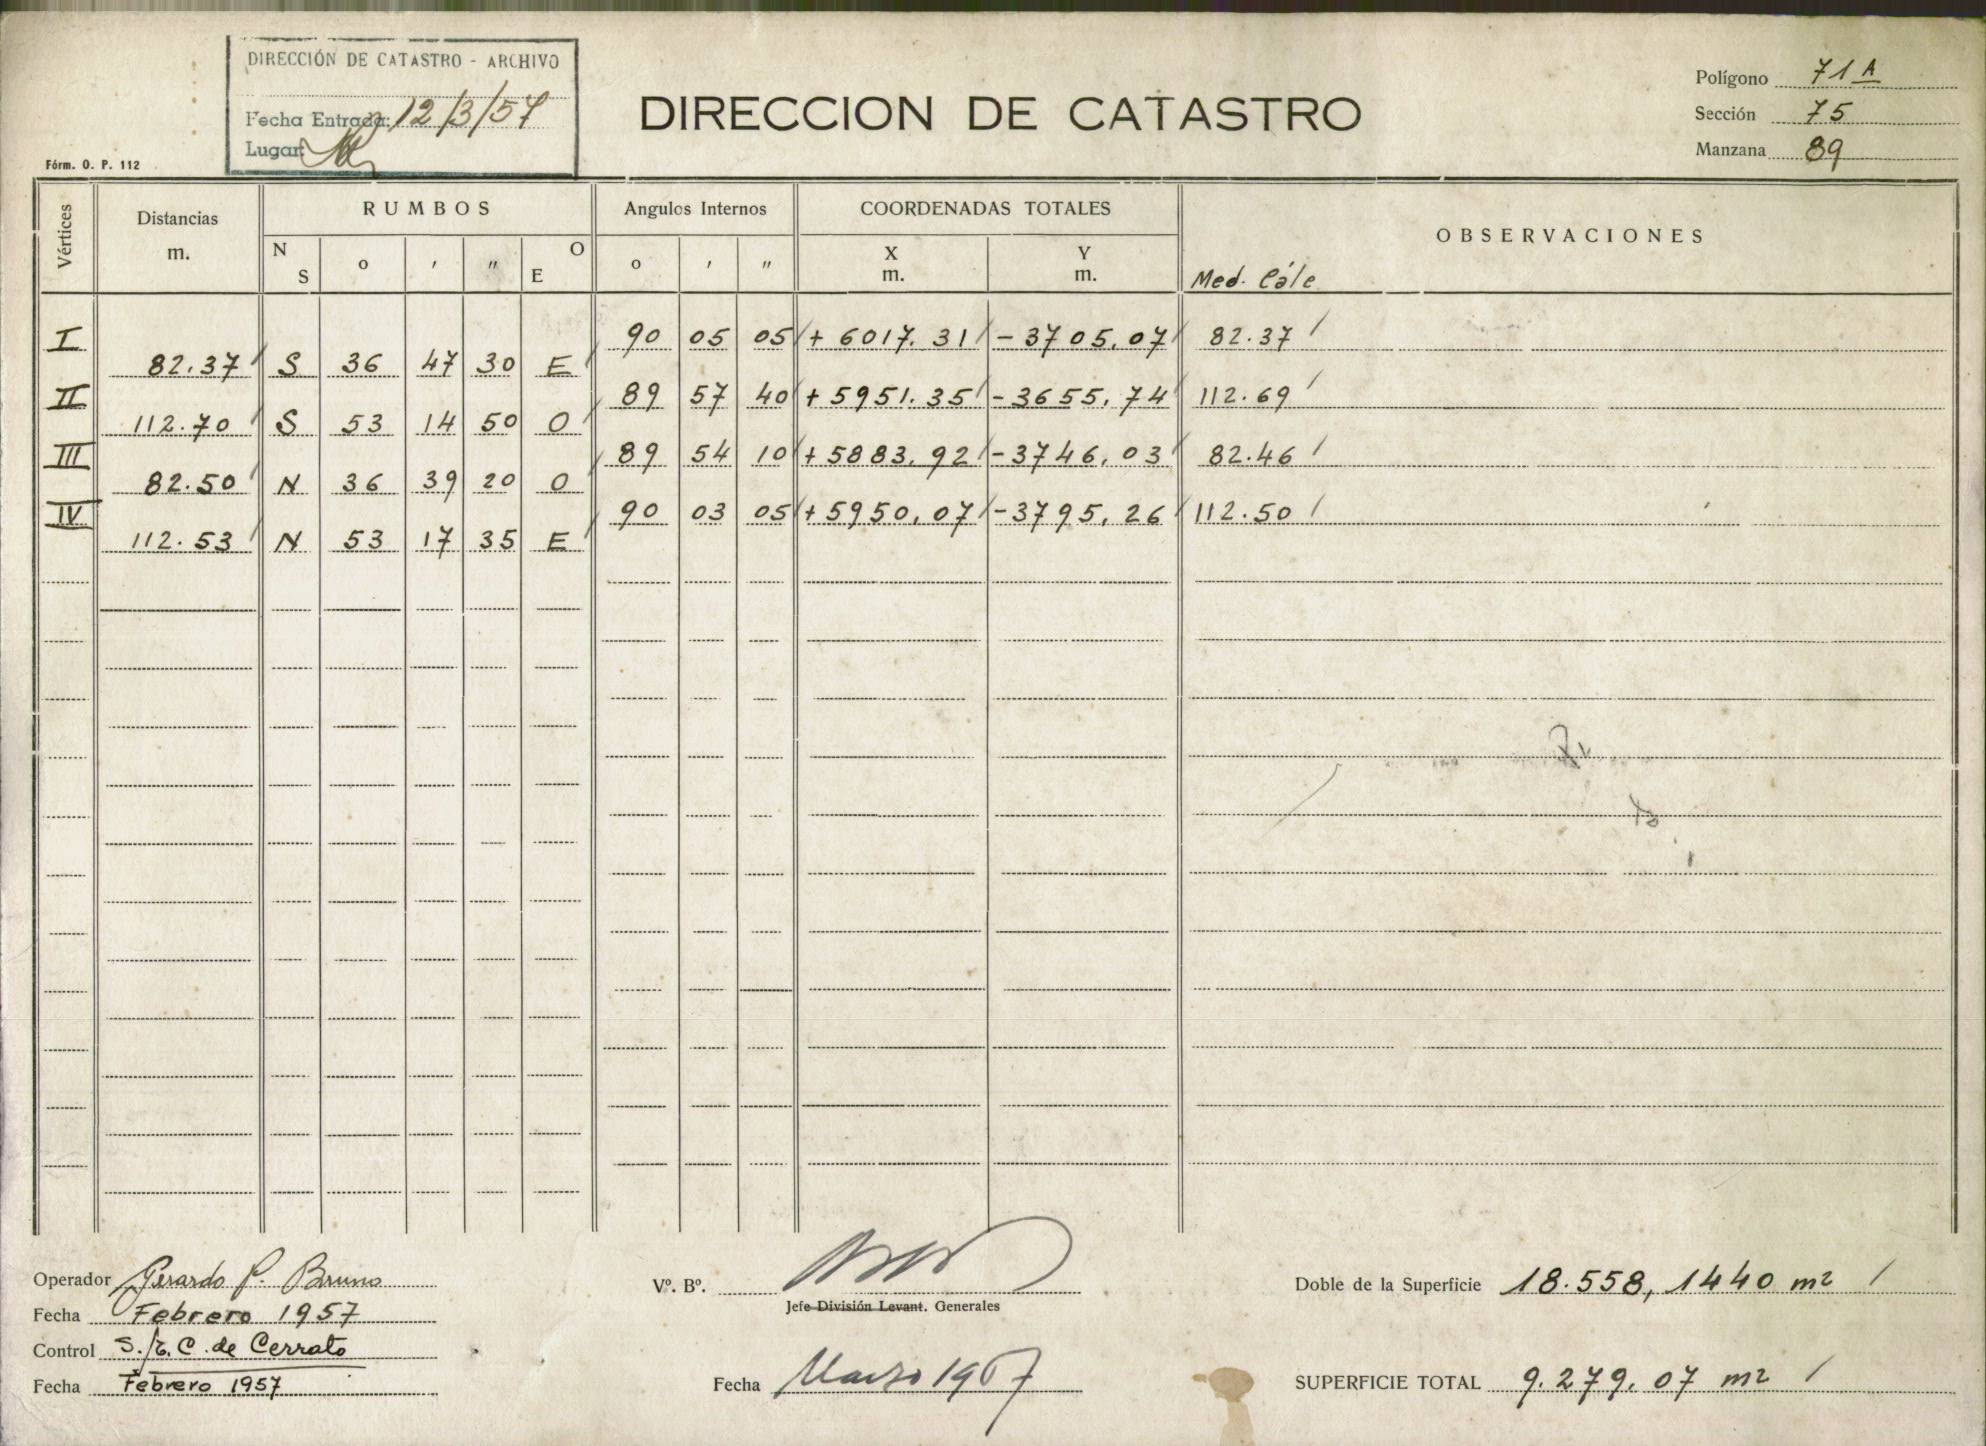 DIRECCIÓN DE CATASTRO - ARCHIVO
Fecha Entrada: 12/3/57
Lugar:
Fórm. O. P. 112
DIRECCION DE CATASTRO
Polígono 71 A
Sección 75
Manzana 89
Vértices Distancias m. RUMBOS Angulos Internos COORDENADAS TOTALES OBSERVACIONES
N S o ' " O E o ' " X m. Y m. Med. Cále
I 90 05 05 + 6017.31 - 3705.07 82.37
82.37 S 36 47 30 E
II 89 57 40 + 5951.35 - 3655.74 112.69
112.70 S 53 14 50 O
III 89 54 10 + 5883.92 - 3746.03 82.46
82.50 N 36 39 20 O
IV 90 03 05 + 5950.07 - 3795.26 112.50
112.53 N 53 17 35 E
Operador Gerardo P. Bruno
Fecha Febrero 1957
Control S. C. de Cerrato
Fecha Febrero 1957
Vº. Bº.
Jefe División Levant. Generales
Fecha Marzo 1957
Doble de la Superficie 18.558,1440 m2
SUPERFICIE TOTAL 9.279.07 m2